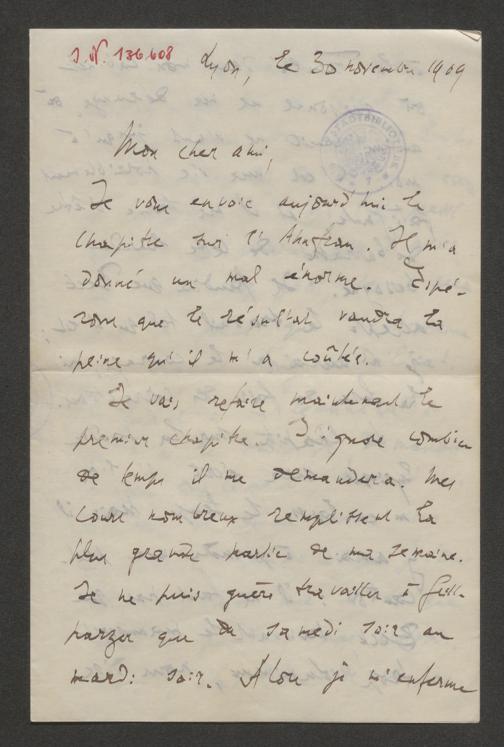 I.N. 136.608
Lyon, le 30 novembre 1909
STADTBIBLIOTHEK
Mon cher ami,
Je vous envoie aujourd'hui le
chapitre sur l'Ahnfrau. Il m'a
donné un mal énorme. Espé-
rons que le résultat vaudra la
peine qu'il m'a coûtée.
Je vais refaire maintenant le
premier chapitre. J'ignore combien
de temps il me demandera. Mes
cours nombreux remplissent la
plus grande partie de ma semaine.
Je ne puis guère travailler à Grill-
parzer que du samedi soir au
mardi soir. Alors je m'enferme